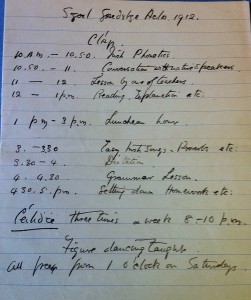 Sgoil Acla, 1912.
Clár.
10 A.M. – 10.50. Irish Phonetics
10.50 – 11 Conversation with native speakers.
11 – 12 Lesson by one of teachers.
12 – 1 p.m. Reading, Explanation etc.
1 pm – 3 p.m. Luncheon hour.
3. – 3.30 Easy Irish Songs – Proverbs etc.
3.30 – 4. Dictation
4. – 4.30 Grammar Lesson.
4.30. 5. p.m. Setting down Homework etc.
Céilidhe three times a week 8–10 p.m.
Figure dancing taught.
All free from 1 o'clock on Saturdays.